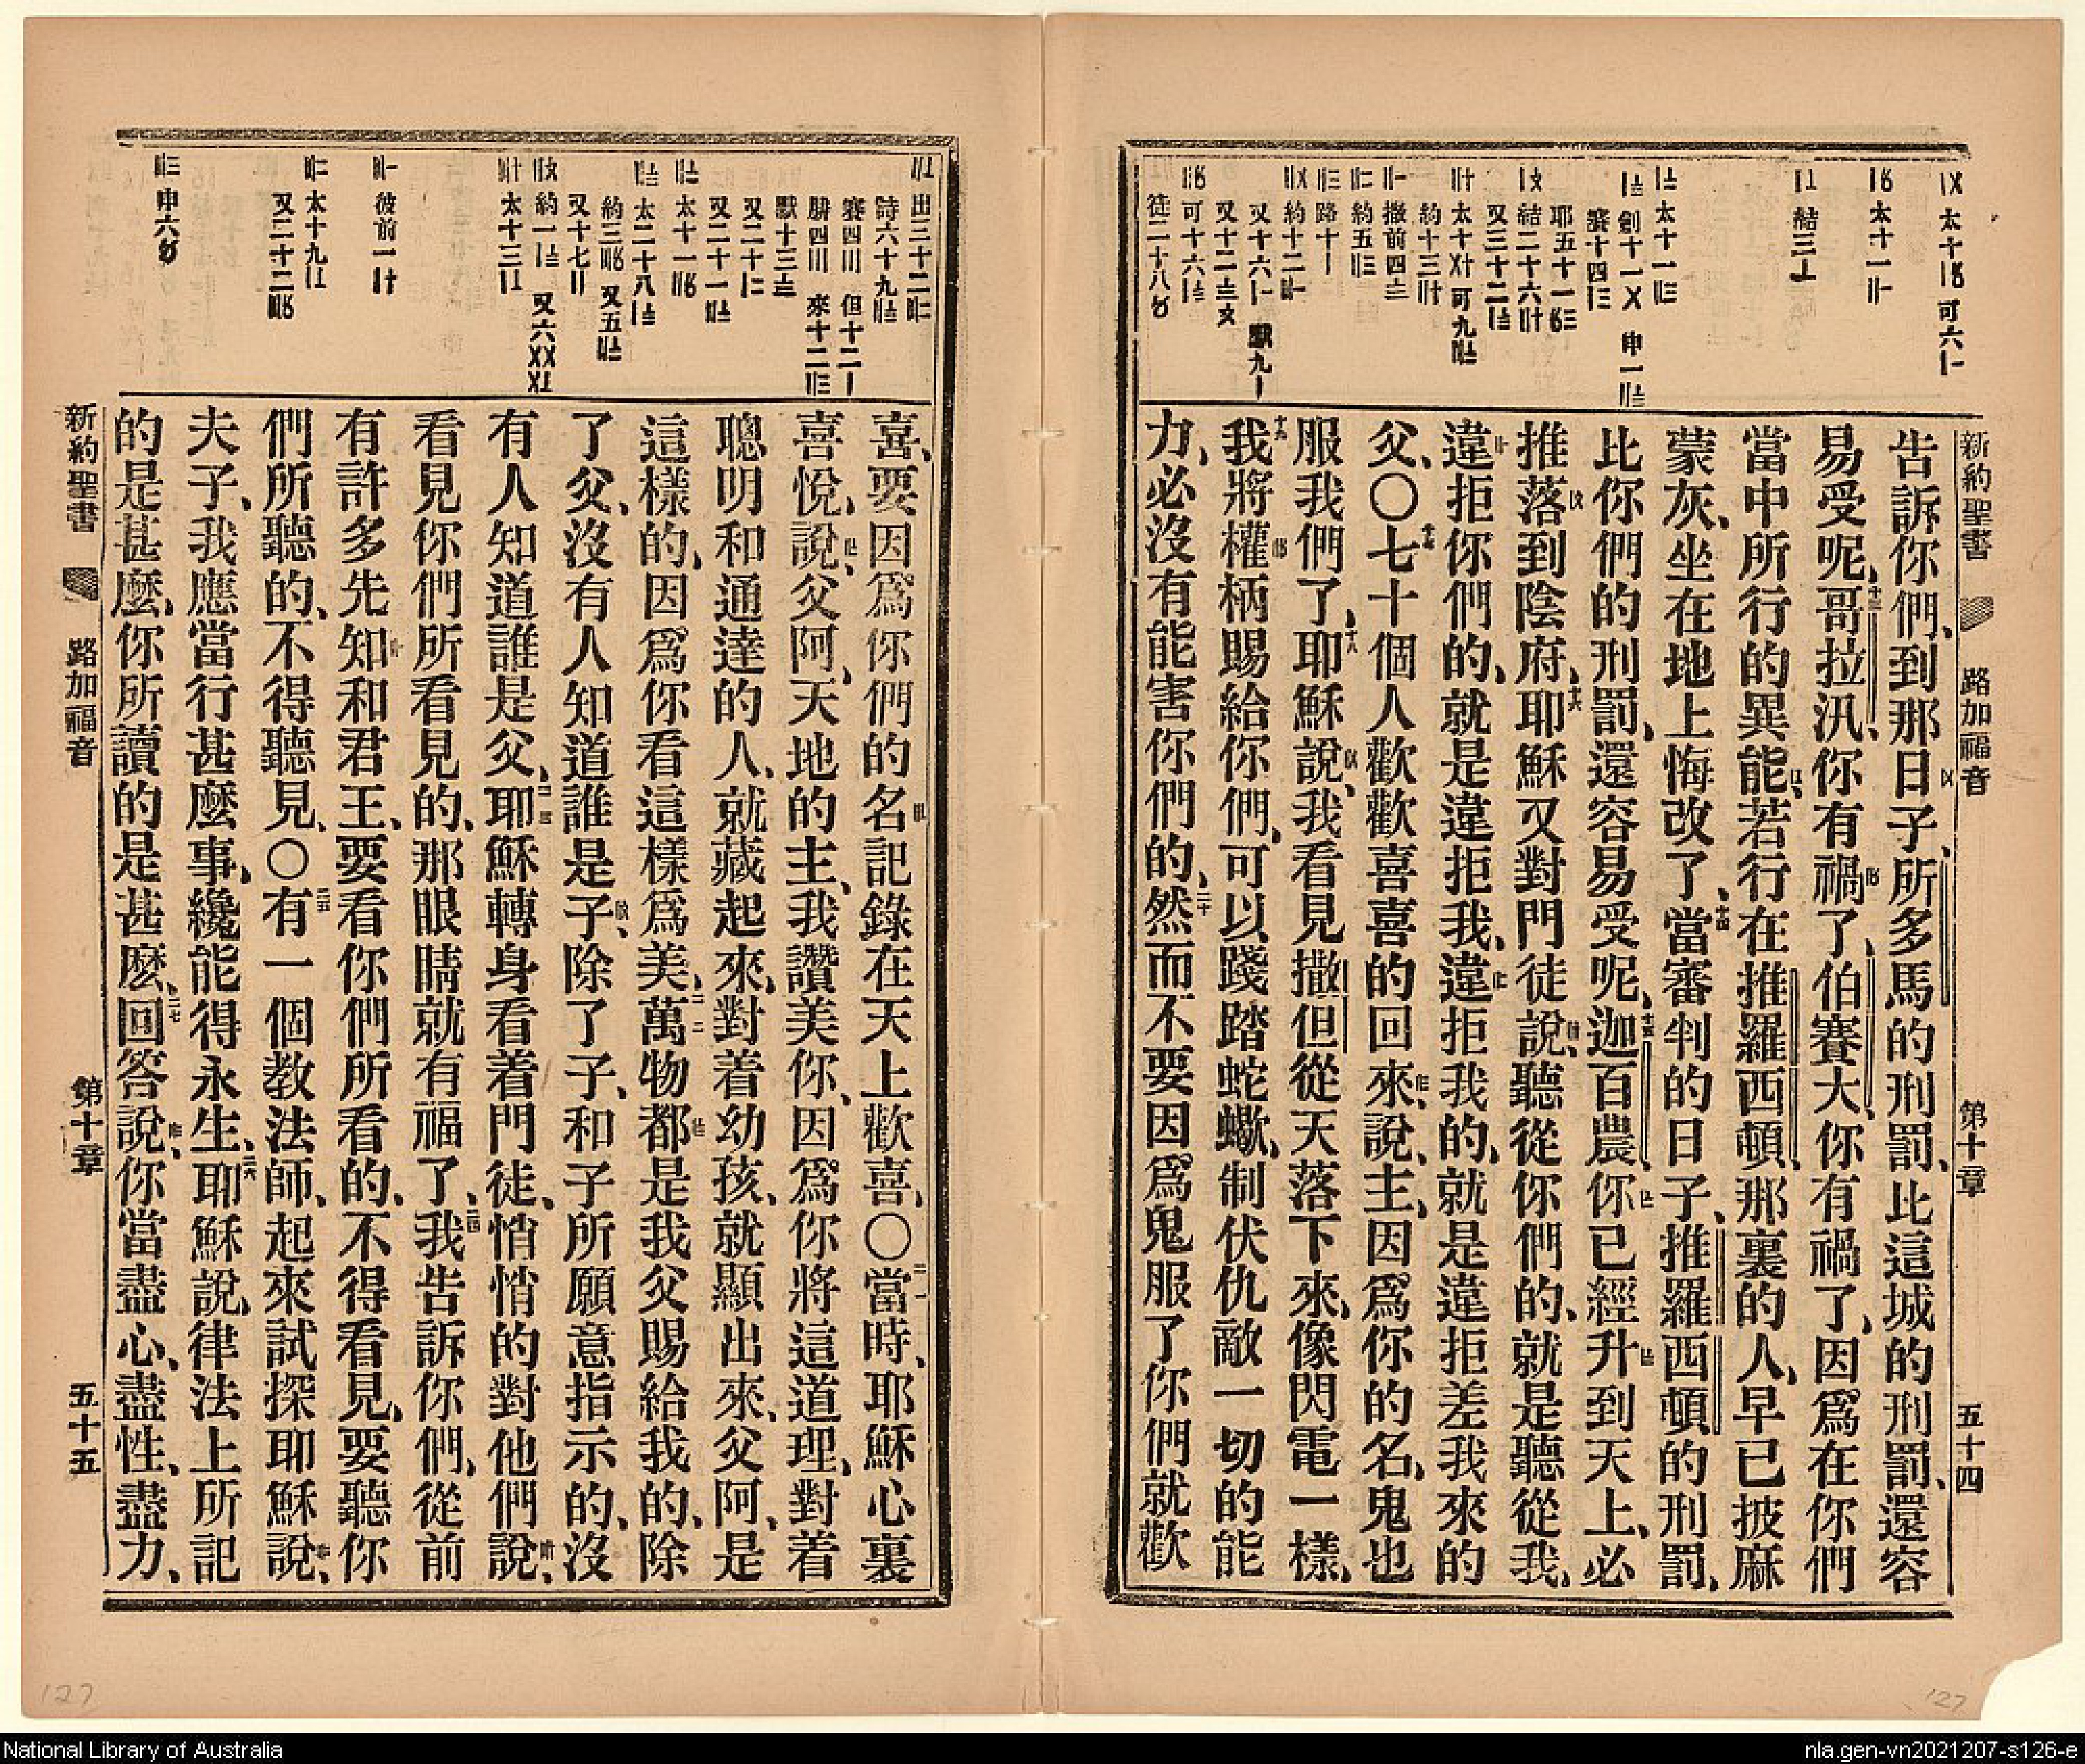 新約聖書 路加福音 第十章 五十四
告訴你們、到那日子、所多馬的刑罰、比這城的刑罰、還容
易受呢、哥拉汛、你有禍了、伯賽大、你有禍了、因爲在你們
當中所行的異能、若行在推羅西頓、那裏的人、早已披麻
蒙灰、坐在地上悔改了、當審判的日子、推羅西頓的刑罰、
比你們的刑罰、還容易受呢、迦百農、你已經升到天上、必
推落到陰府、耶穌又對門徒說、聽從你們的、就是聽從我、
違拒你們的、就是違拒我、違拒我的、就是違拒差我來的
父、〇七十個人歡歡喜喜的回來、說、主、因爲你的名、鬼也
服我們了、耶穌說、我看見撒但從天落下來、像閃電一樣、
我將權柄賜給你們、可以踐踏蛇蠍、制伏仇敵一切的能
力、必沒有能害你們的、然而不要因爲鬼服了你們就歡
喜、要因爲你們的名記錄在天上歡喜、〇當時、耶穌心裏
喜悅、說、父阿、天地的主、我讚美你、因爲你將這道理、對着
聰明和通達的人、就藏起來、對着幼孩、就顯出來、父阿、是
這樣的、因爲你看這樣爲美、萬物都是我父賜給我的、除
了父、沒有人知道誰是子、除了子、和子所願意指示的、沒
有人知道誰是父、耶穌轉身看着門徒、悄悄的對他們說、
看見你們所看見的、那眼睛就有福了、我告訴你們、從前
有許多先知和君王、要看你們所看的、不得看見、要聽你
們所聽的、不得聽見、〇有一個教法師、起來試探耶穌說、
夫子、我應當行甚麼事、纔能得永生、耶穌說、律法上所記
的是甚麼、你所讀的是甚麽、回答說、你當盡心、盡性、盡力、
新約聖書 路加福音 第十章 五十五
127
127
National Library of Australia
nla.gen-vn2021207-s126-e